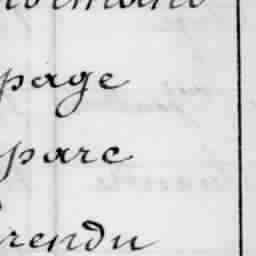 page
parc
rendu